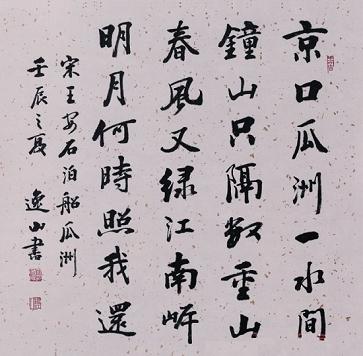 京口瓜洲一水間
鐘山只隔数重山
春風又绿江南岸
明月何時照我還
宋王安石泊船瓜洲
壬辰之夏 逸山書